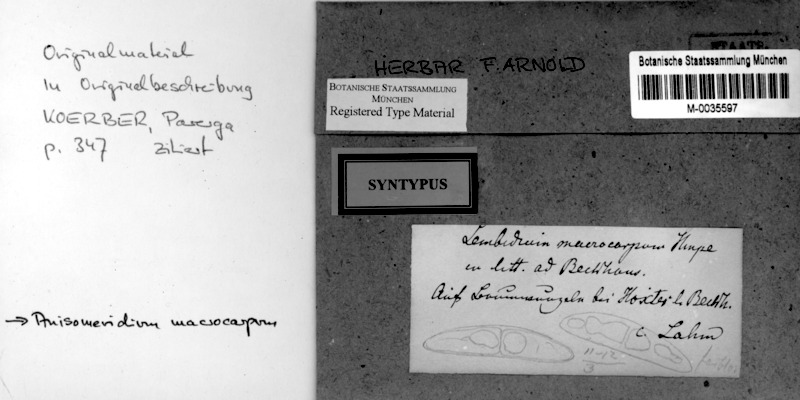 Originalmaterial
In Originalbeschreibung
KOERBER, Parerga
p. 347 zitiert
→ Anisomeridium macrocarpum
HERBAR F. ARNOLD
BOTANISCHE STAATSSAMMLUNG
MÜNCHEN
Registered Type Material
STAATS-
Botanische Staatssammlung München
M-0035597
SYNTYPUS
Lembidium macrocarpum Hmpe
in litt. ad Beckhaus.
Auf Baumwurzeln bei Höxter l. Beckh.
c. Lahm
11-12
3